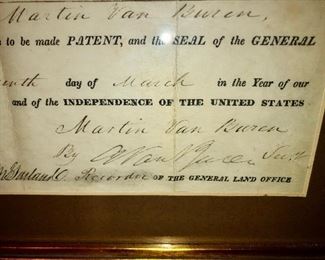 Martin Van Buren,
to be made PATENT, and the SEAL of the GENERAL
day of March in the Year of our
and of the INDEPENDENCE OF THE UNITED STATES
Martin Van Buren
By Van Buren Sec'y
Recorder OF THE GENERAL LAND OFFICE